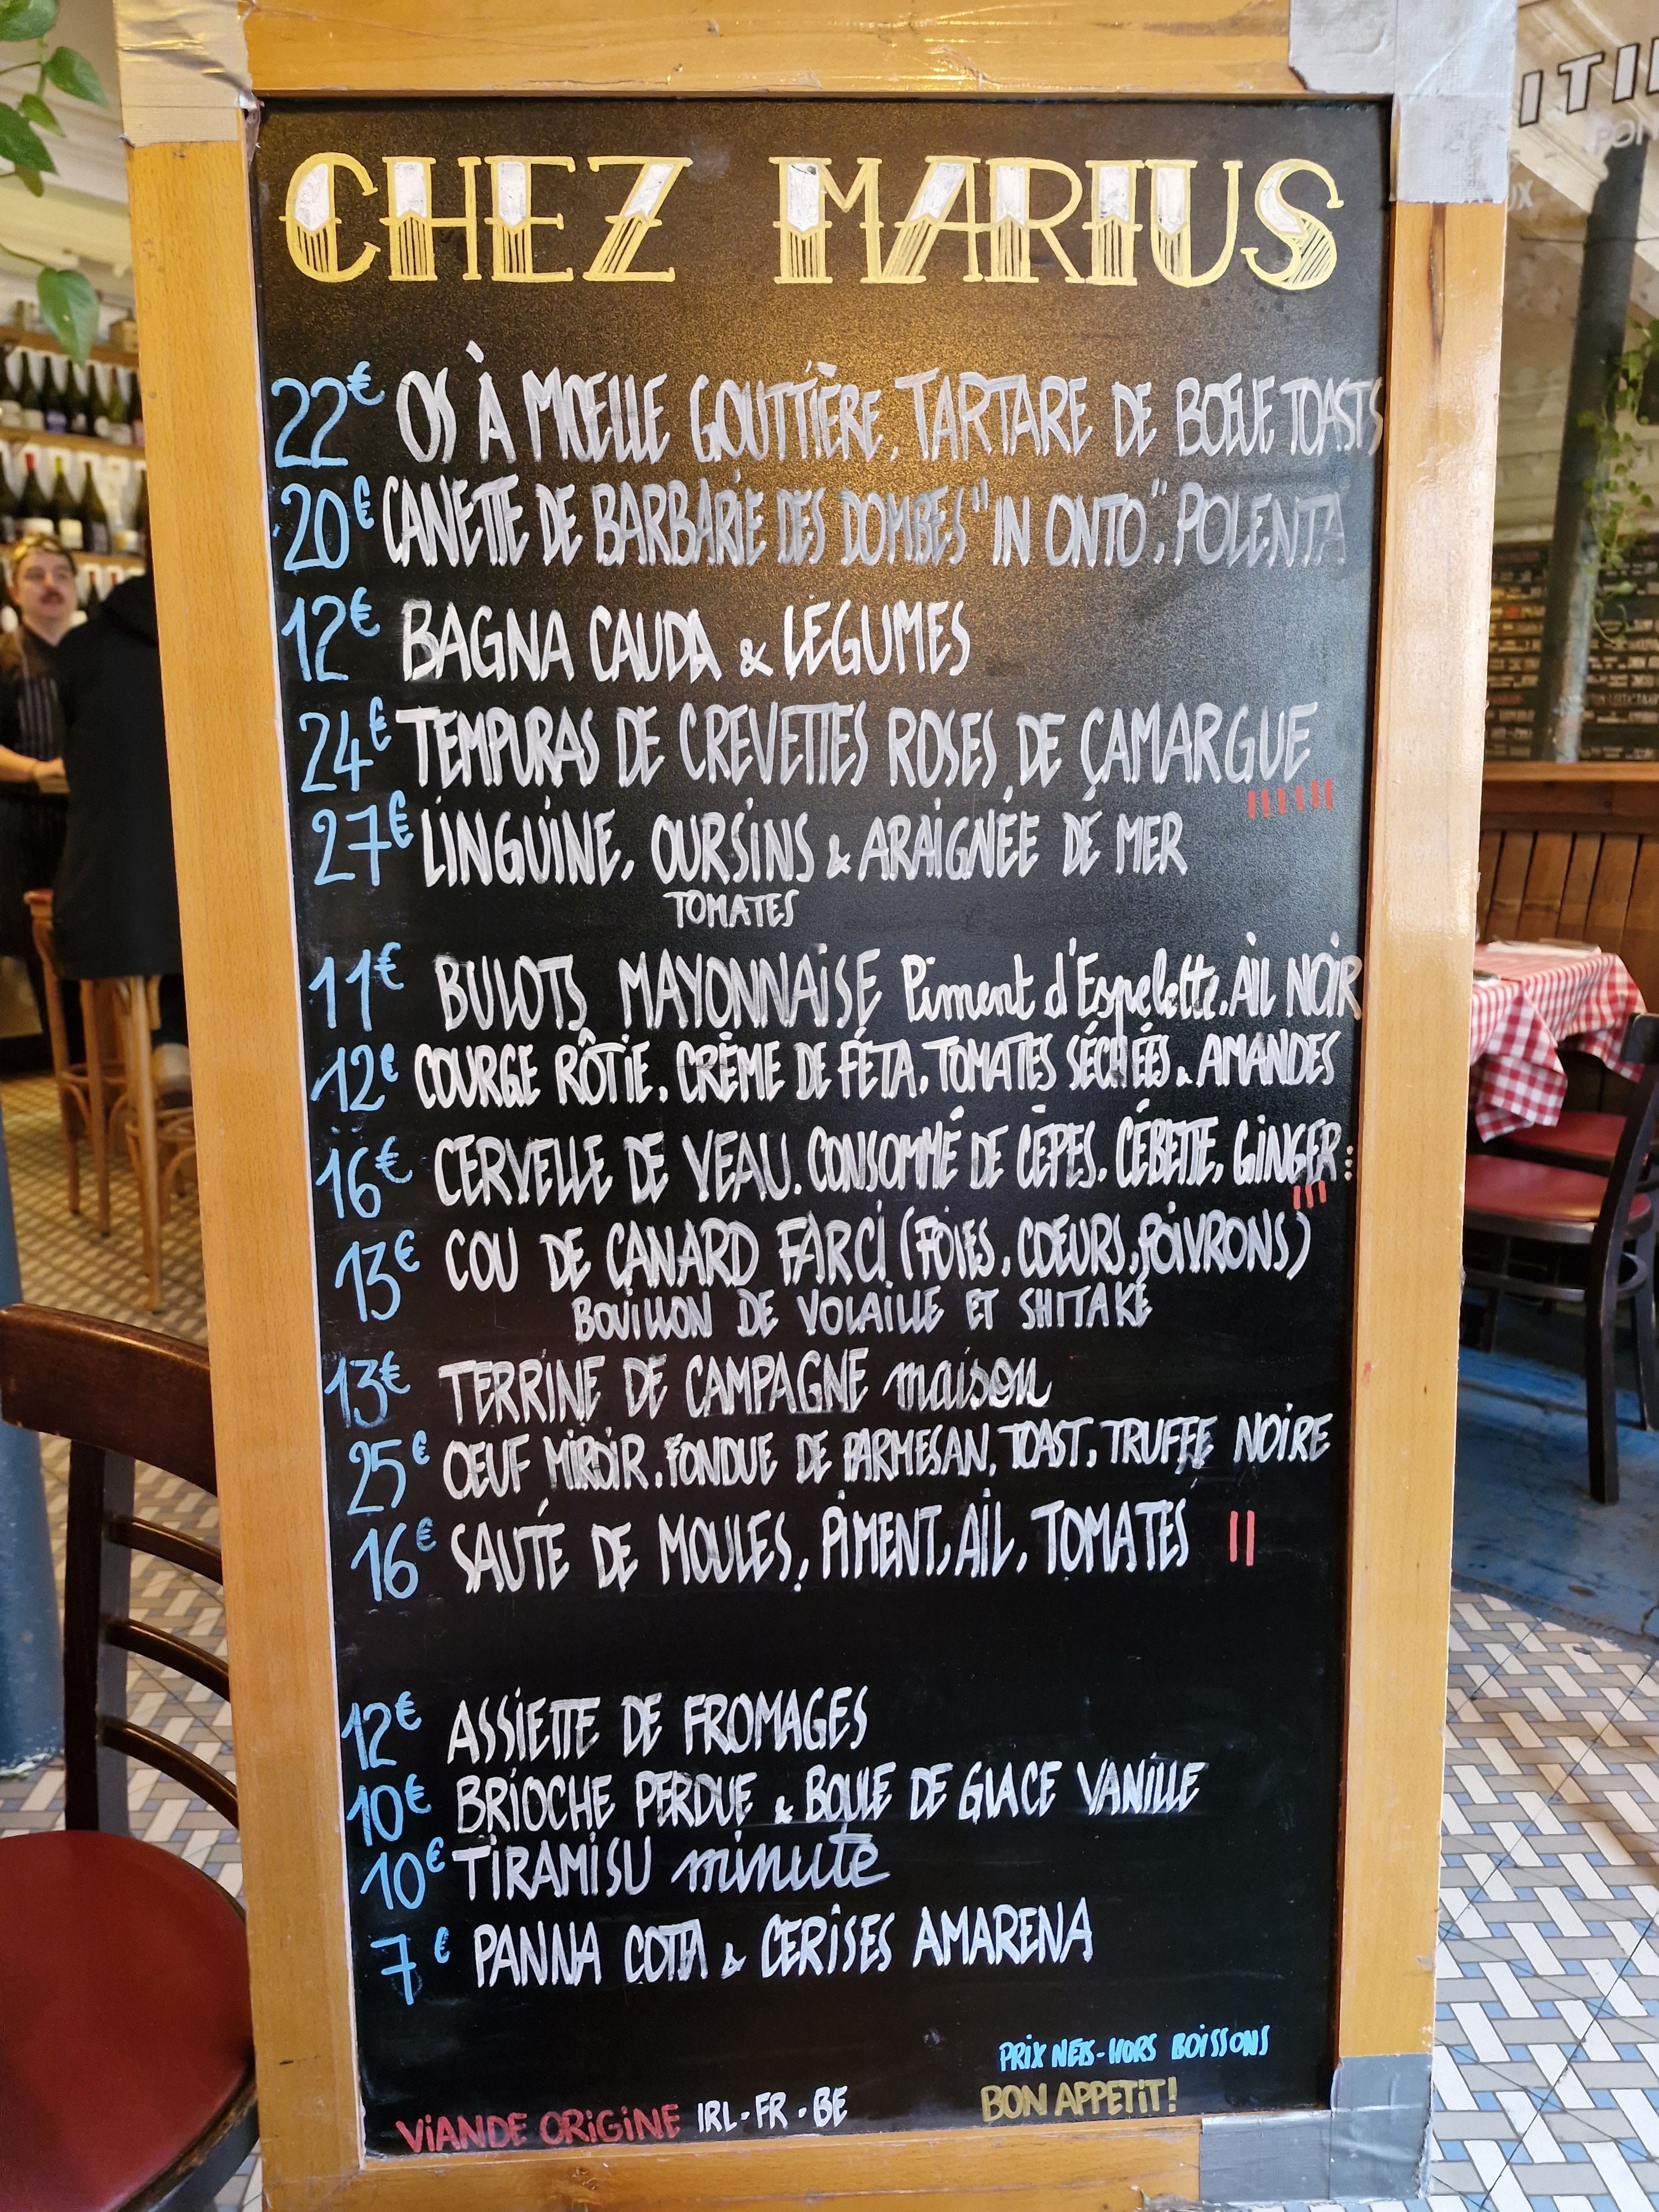 CHEZ MARIUS
22€ OS À MOELLE GOUTTIÈRE, TARTARE DE BOEUF TOASTS
20€ CANETTE DE BARBARIE DES DOMBES "IN ONTO", POLENTA
12€ BAGNA CAUDA & LEGUMES
24€ TEMPURAS DE CREVETTES ROSES DE ÇAMARGUE
27€ LINGUINE, OURSINS & ARAIGNÉE DE MER
TOMATES
11€ BULOTS, MAYONNAISE Piment d'Espelette, AIL NOIR
12€ COURGE RÔTIE, CRÈME DE FÉTA, TOMATES SÉCHÉES & AMANDES
16€ CERVELLE DE VEAU, CONSOMMÉ DE CÈPES, CÉBETTE, GINGER
13€ COU DE CANARD FARCI (FOIES, COEURS, POIVRONS)
BOUILLON DE VOLAILLE ET SHITAKÉ
13€ TERRINE DE CAMPAGNE maison
25€ OEUF MIROIR, FONDUE DE PARMESAN, TOAST, TRUFFE NOIRE
16€ SAUTÉ DE MOULES, PIMENT, AIL, TOMATES
12€ ASSIETTE DE FROMAGES
10€ BRIOCHE PERDUE & BOULE DE GLACE VANILLE
10€ TIRAMISU minute
7€ PANNA COTTA & CERISES AMARENA
PRIX NETS - HORS BOISSONS
BON APPETIT!
VIANDE ORIGINE IRL - FR - BE